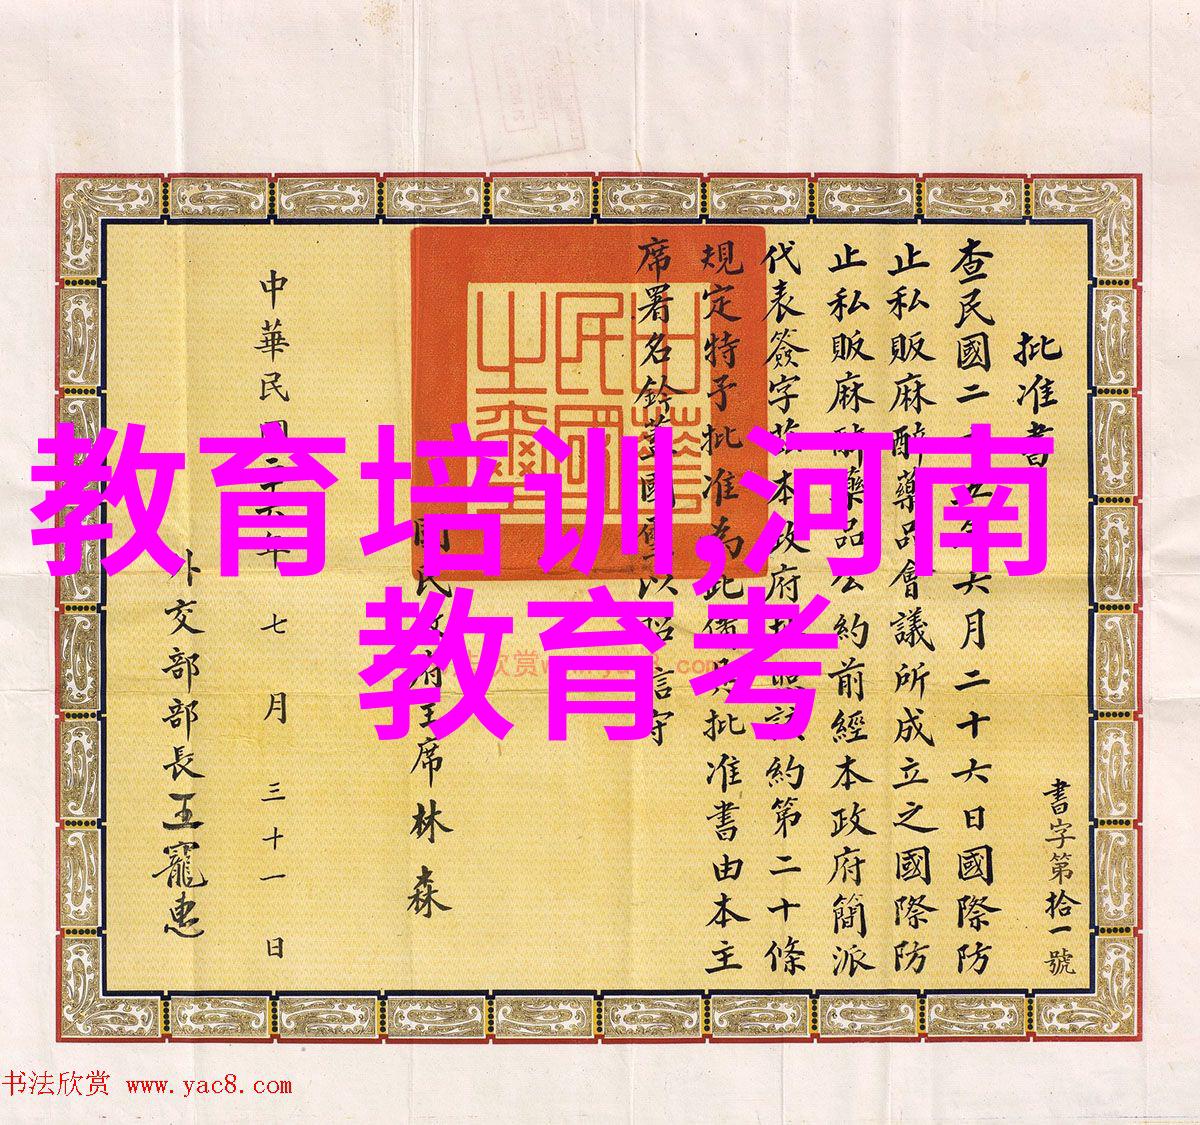 教育培训,河南
教育考
書字第拾一號
批准書
查民國二十五年六月二十六日國際防
止私販麻醉藥品會議所成立之國際防
止私販麻醉藥品公約前經本政府簡派
代表簽字茲本政府按照該約第二十條
規定特予批准為此備具批准書由本主
席署名鈐蓋國璽以昭信守
中華民國之璽
國民政府主席林森
中華民國二十六年七月三十一日
外交部部長王寵惠
书法欣赏 www.yac8.com